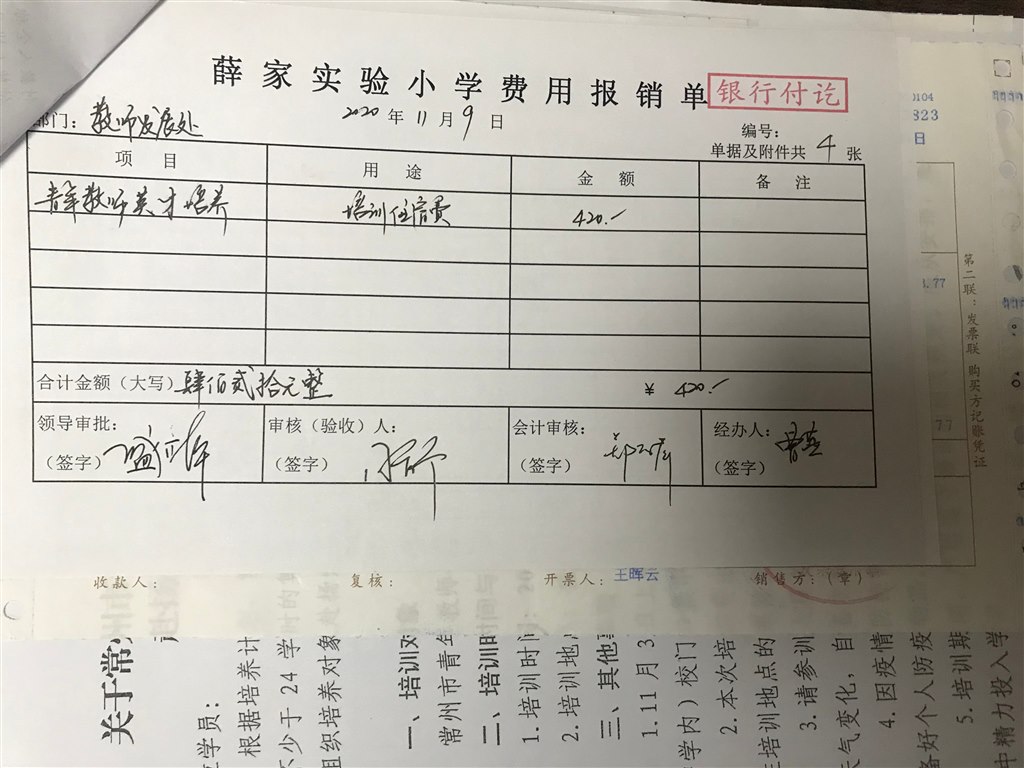 薛家实验小学费用报销单
银行付讫
部门：教师发展处
2020年11月9日
编号：
单据及附件共4张
项目 用途 金额 备注
青年教师英才培养 培训住宿费 420.-
合计金额（大写）肆佰贰拾元整 ¥ 420.-
领导审批： 审核（验收）人： 会计审核： 经办人：
（签字） （签字） （签字） （签字）
0104
823
日
.77
77
第二联：发票联 购买方记账凭证
收款人： 复核： 开票人：王晖云 销售方：（章）
关于常
学员：
根据培养计
不少于24学
组织培养对象
一、培训对
常州市青年
二、培训时
1.培训时间
2.培训地
三、其他
1.11月3
学内）校门
2.本次培
培训地点的
3.请参训
天气变化，自
4.因疫情
备好个人防疫
5.培训期
中精力投入学